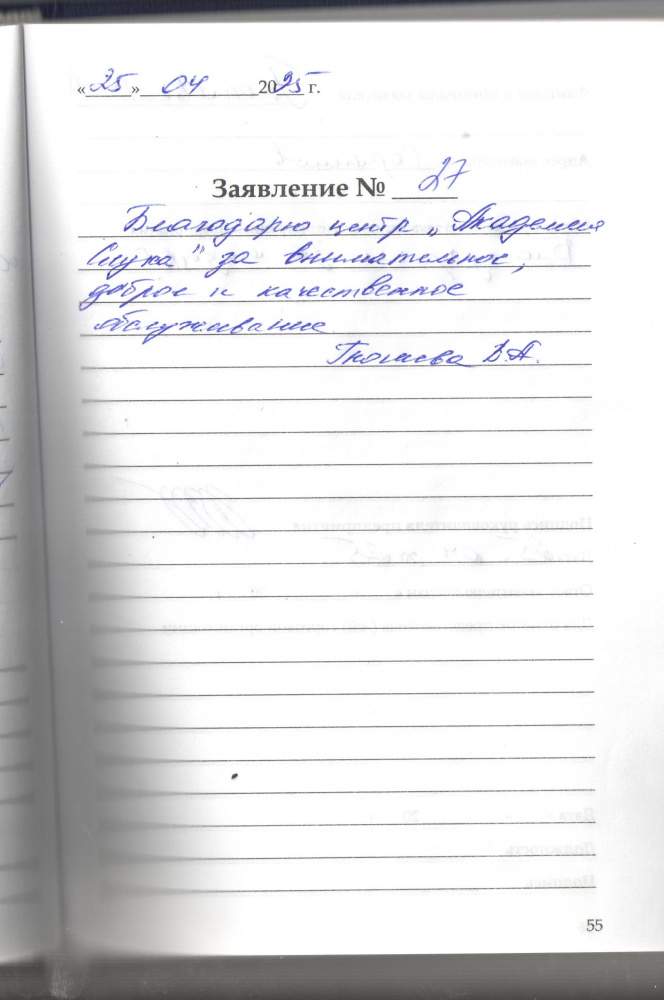 «25» 04 2025 г.
Заявление № 27
Благодарю центр „Академия
Слуха" за внимательное,
доброе и качественное
обслуживание
В.А.
55